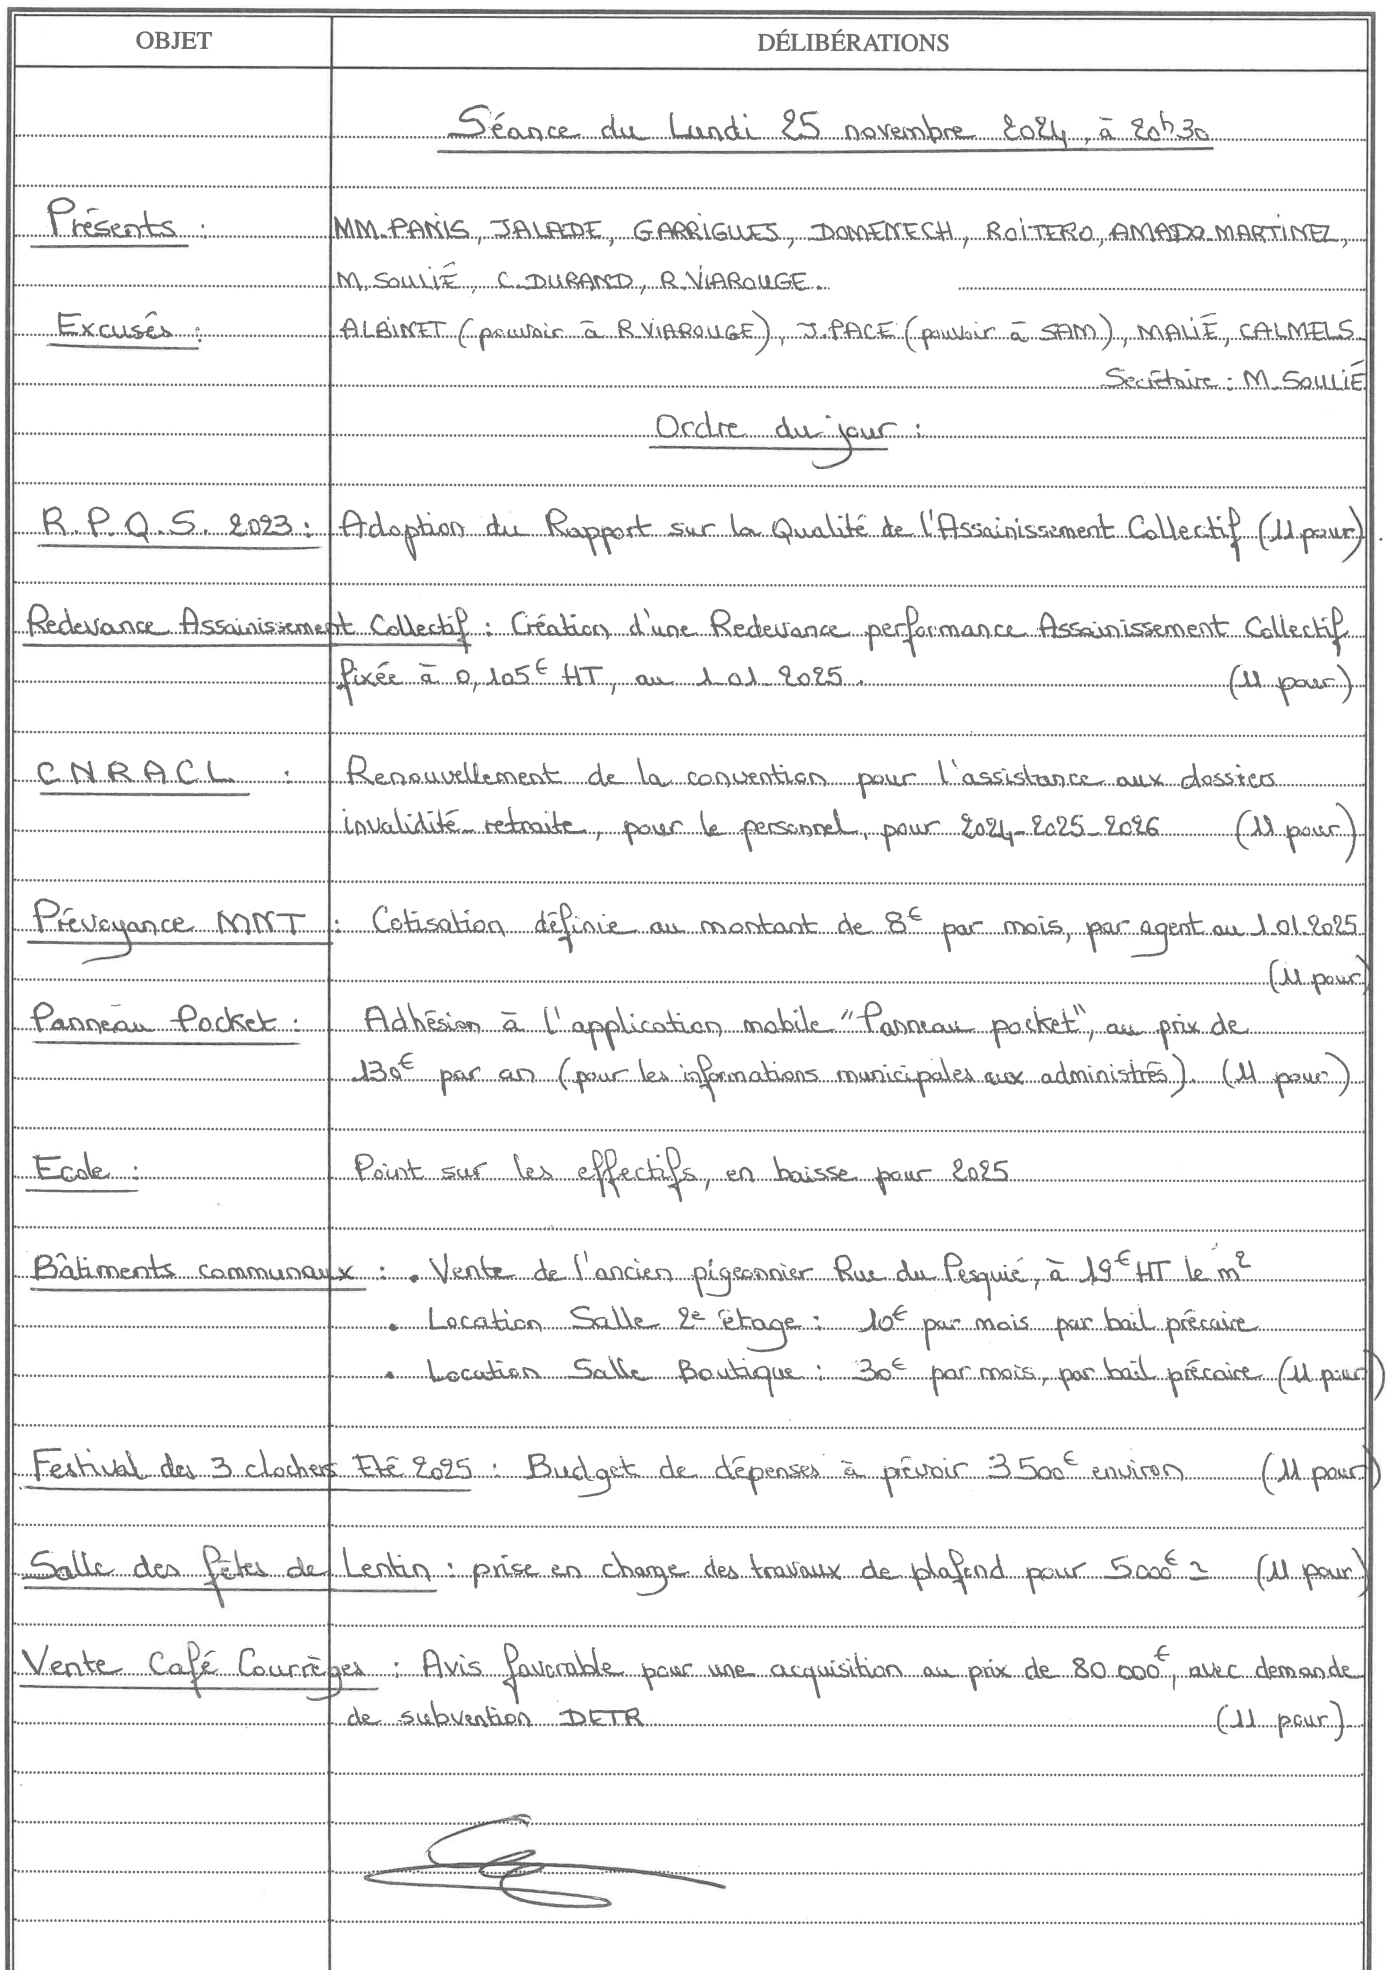 OBJET DÉLIBÉRATIONS
Séance du Lundi 25 novembre 2024, à 20h30
Présents : MM. PANIS, JALADE, GARRIGUES, DOMENECH, ROITERO, AMADO-MARTINEZ,
M. SOULIÉ, C. DURAND, R. VIAROUGE.
Excusés : ALBINET (pouvoir à R. VIAROUGE), J. PACE (pouvoir à SAM), MALIÉ, CALMELS.
Secrétaire : M. SOULIÉ
Ordre du jour :
R.P.Q.S. 2023 : Adoption du Rapport sur la Qualité de l'Assainissement Collectif (11 pour).
Redevance Assainissement Collectif : Création d'une Redevance performance Assainissement Collectif
fixée à 0,105€ HT, au 1.01.2025. (11 pour)
CNRACL : Renouvellement de la convention pour l'assistance aux dossiers
invalidité-retraite, pour le personnel, pour 2024-2025-2026 (11 pour)
Prévoyance MNT : Cotisation définie au montant de 8€ par mois, par agent au 1.01.2025
(11 pour)
Panneau Pocket : Adhésion à l'application mobile "Panneau pocket", au prix de
130€ par an (pour les informations municipales aux administrés). (11 pour)
Ecole : Point sur les effectifs, en baisse pour 2025
Bâtiments communaux : • Vente de l'ancien pigeonnier Rue du Pesquié, à 19€ HT le m²
• Location Salle 2e étage : 10€ par mois par bail précaire
• Location Salle Boutique : 30€ par mois, par bail précaire (11 pour)
Festival des 3 clochers Eté 2025 : Budget de dépenses à prévoir 3500€ environ (11 pour)
Salle des fêtes de Lentin : prise en charge des travaux de plafond pour 5000€ (11 pour)
Vente Café Courrèges : Avis favorable pour une acquisition au prix de 80.000€, avec demande
de subvention DETR (11 pour).